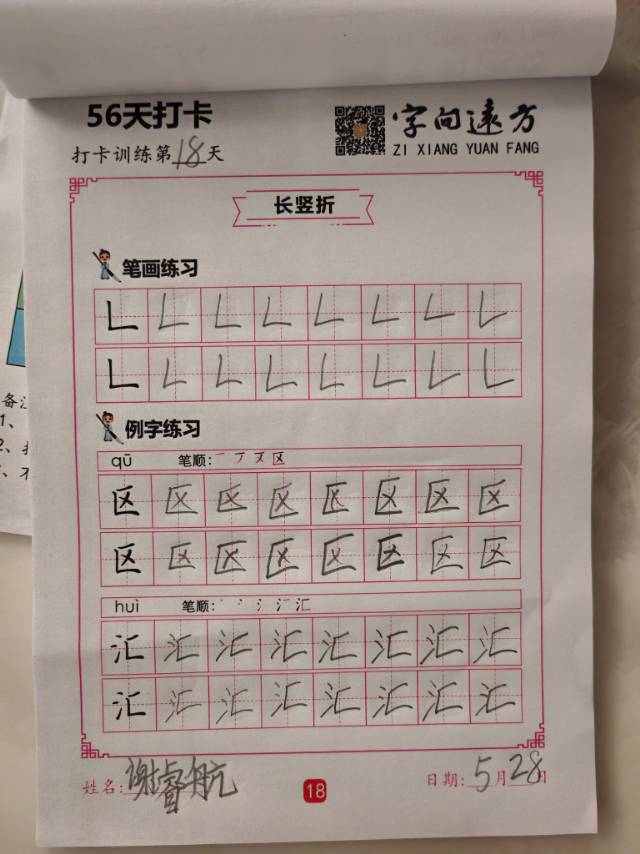 56天打卡
字向遠方
打卡训练第18天
ZI XIANG YUAN FANG
长竖折
笔画练习
例字练习
qū 笔顺: 一 フ 又 区
区 区 区 区 区 区 区 区
区 区 区 区 区 区 区 区
huì 笔顺: 丶 冫 氵 汇 汇
汇 汇 汇 汇 汇 汇 汇 汇
汇 汇 汇 汇 汇 汇 汇 汇
姓名: 谢睿航
18
日期: 5月28日
备注
1、
2、